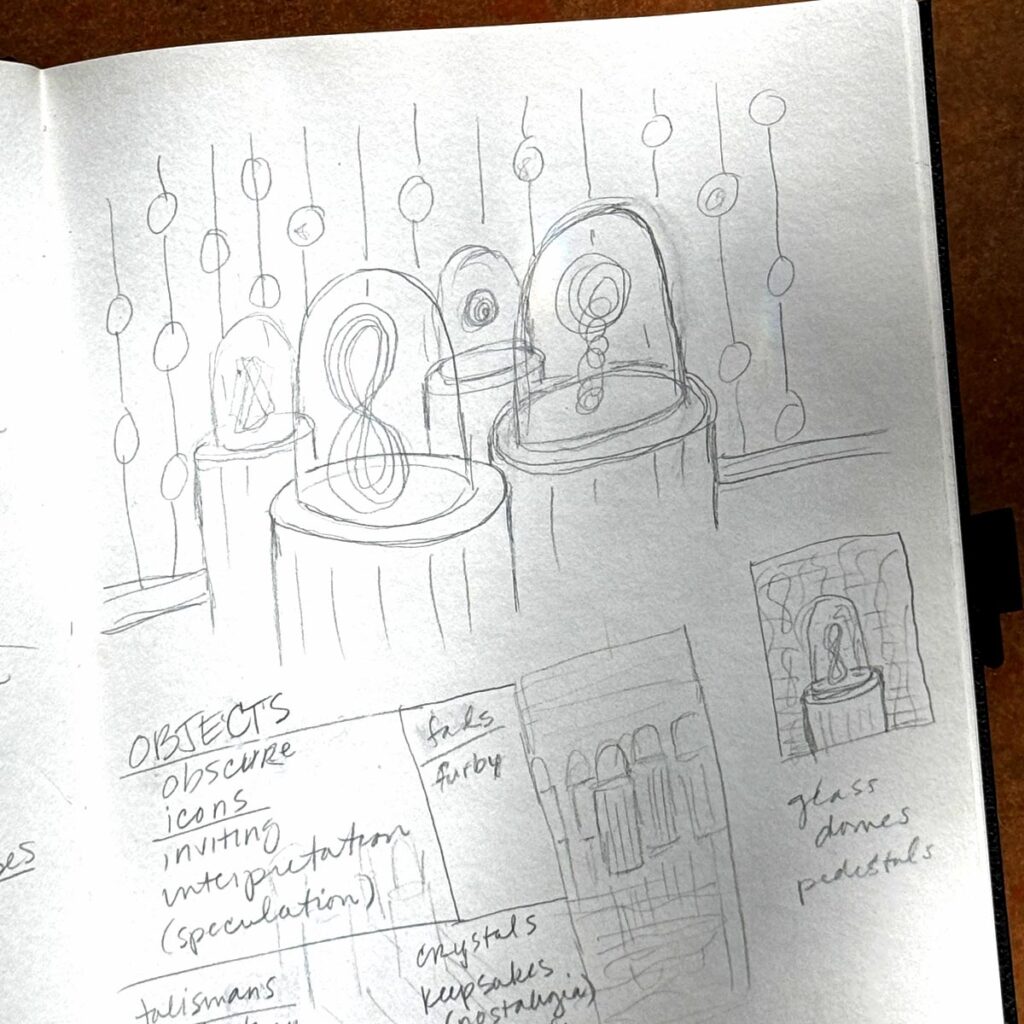 OBJECTS
obscure
icons
inviting
interpretation
(speculation)
fads
furby
glass
domes
pedestals
talismans
crystals
keepsakes
(nostalgia)